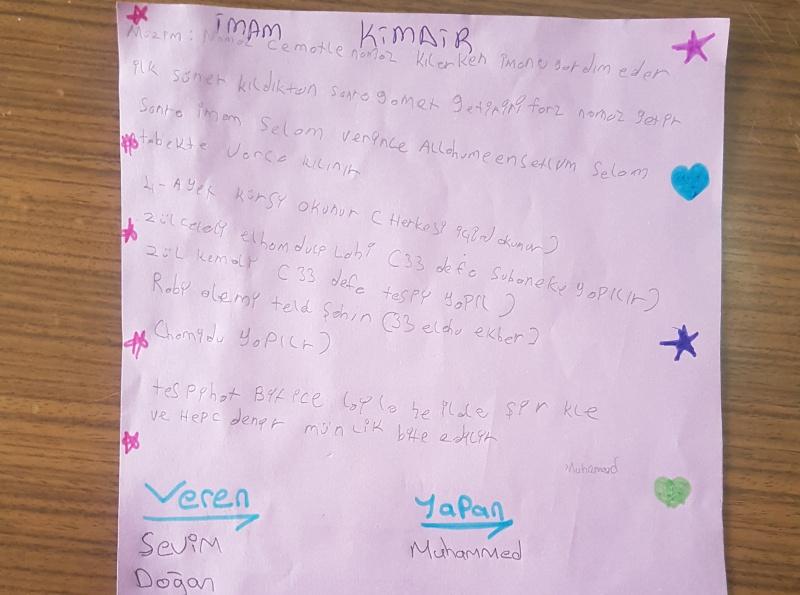 İMAM KİMDİR
Müzim: Namaz cematle namaz kılarken imana yardım eder
ilk sünet kıldıktan sonra gamet getirir farz namaz getir
sonra imam Selam verince Allahumeensetlum Selam
tabekte varca kılınır
1-Ayek kürsy okunur (Herkesi içind okunur)
Zülceloly elhamduce Lahi (33 defa Subaneke yapılır)
Zül kemaly (33 defa tespy yapıl)
Raby alemy teld şanın (33 eldhu ekber)
Chamydu yapılır)
tesppihat Bitice layla he ilde şir kle
ve Hepc denir münlik bite edilir
Muhamed
Veren Yapan
SeviM Muhammed
Doğan